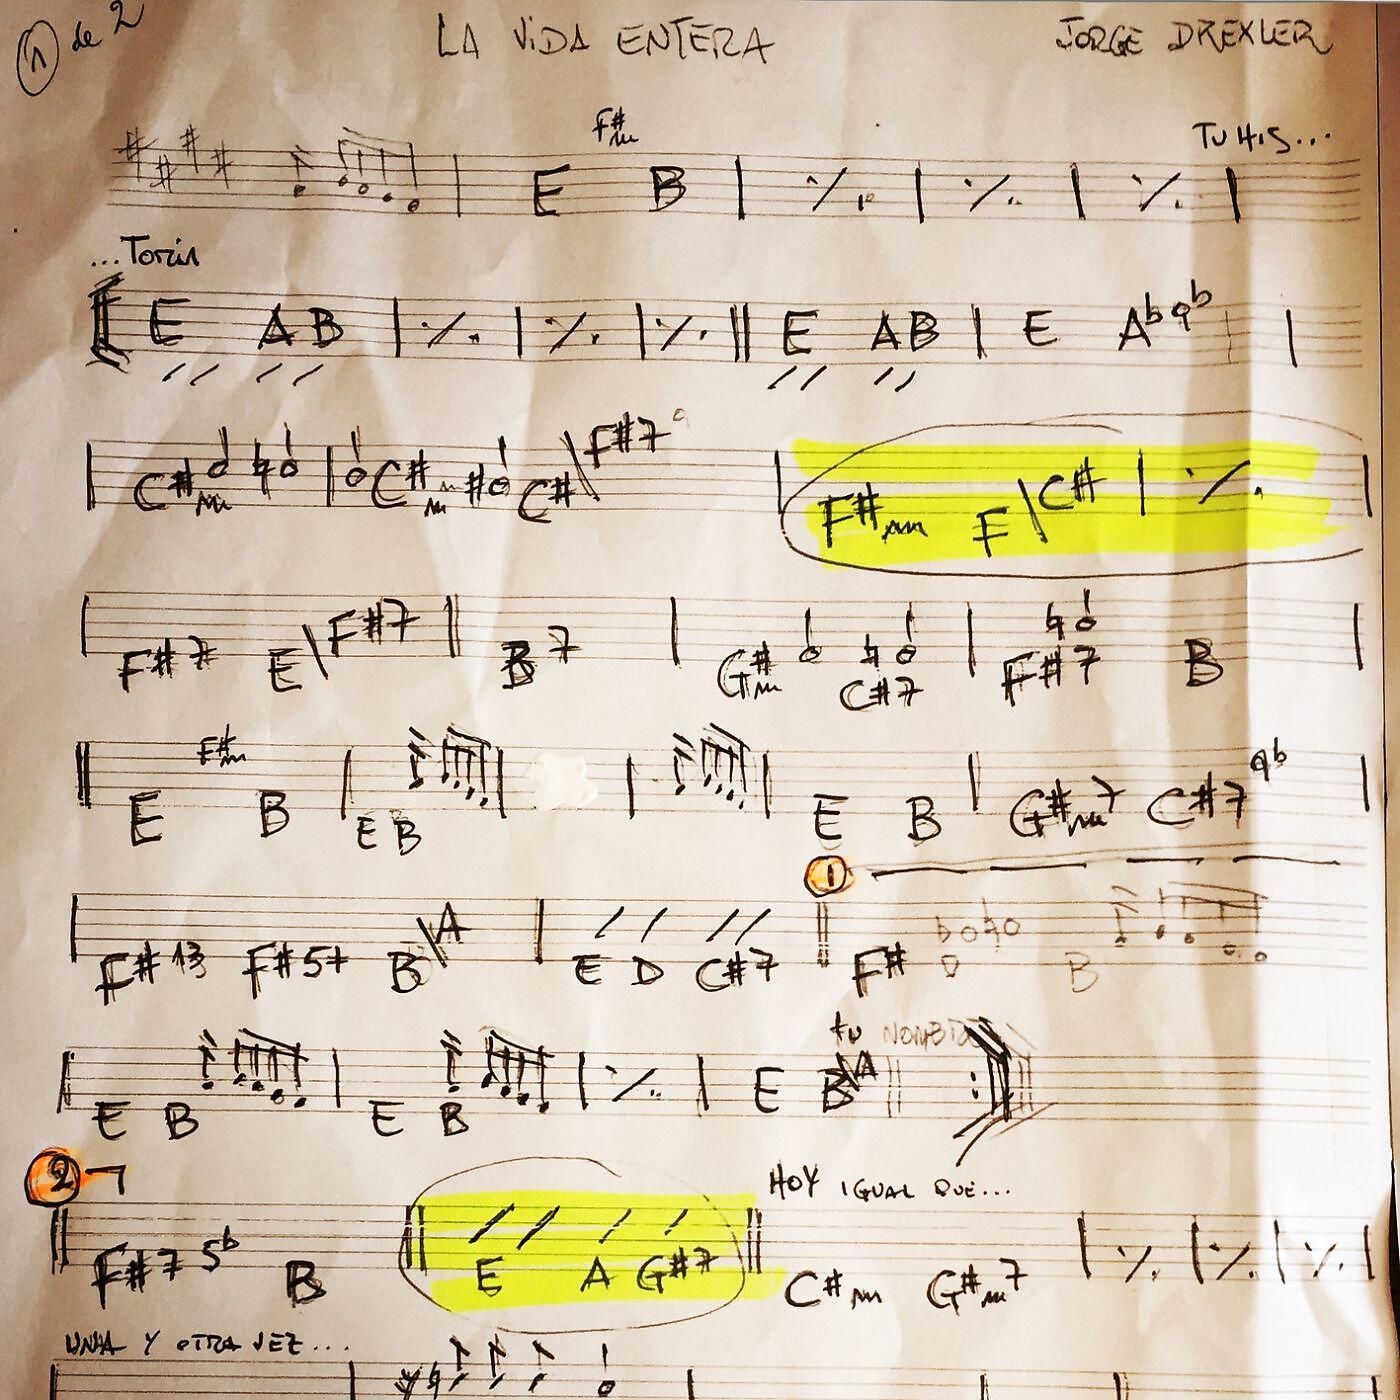 1 de 2 LA VIDA ENTERA JORGE DREXLER
F#m TU HIS...
E B
...Toria
E A B E A B E Ab 9b
C#m C#m C#\F#7 9 F#m E\C#
F#7 E\F#7 B7 G#m C#7 F#7 B
F#m
E B E B E B G#m7 C#7 9b
1
F#13 F#5+ B\A E D C#7 F# D B
tu NOMBRE
E B E B E B\A
2 HOY IGUAL QUE...
F#7 5b B E A G#7 C#m G#m7
UNA Y OTRA VEZ...